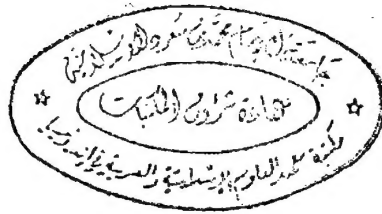 جامعة الإمام محمد بن سعود الإسلامية
عمادة شؤون المكتبات
مكتبة معهد العلوم الإسلامية والعربية بإندونيسيا